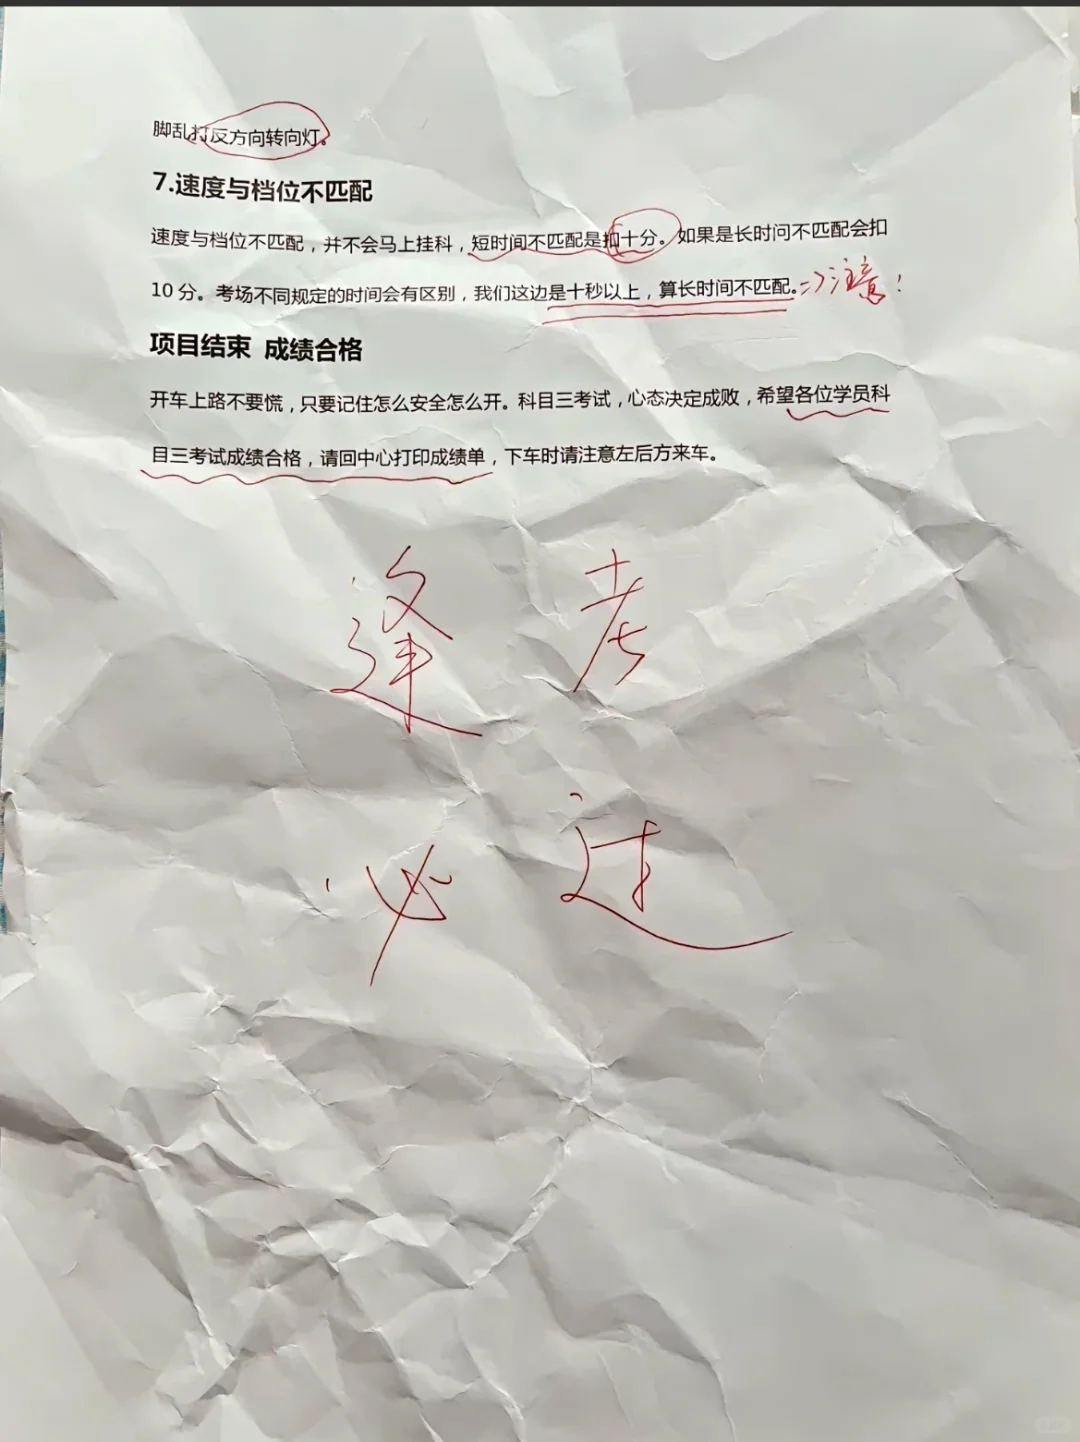 脚乱打反方向转向灯。
7.速度与档位不匹配
速度与档位不匹配，并不会马上挂科，短时间不匹配是扣十分。如果是长时问不匹配会扣
10 分。考场不同规定的时间会有区别，我们这边是十秒以上，算长时间不匹配。=>注意！
项目结束 成绩合格
开车上路不要慌，只要记住怎么安全怎么开。科目三考试，心态决定成败，希望各位学员科
目三考试成绩合格，请回中心打印成绩单，下车时请注意左后方来车。
逢考
必过